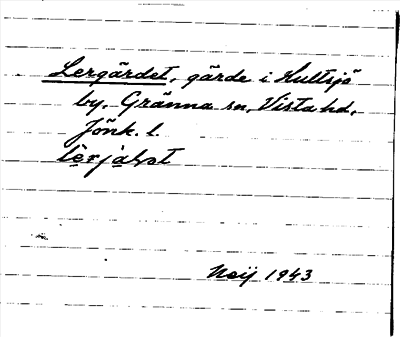 Lergärdet, gärde i Hultsjö
by, Gränna sn, Vista hd,
Jönk. l.
Neij 1943